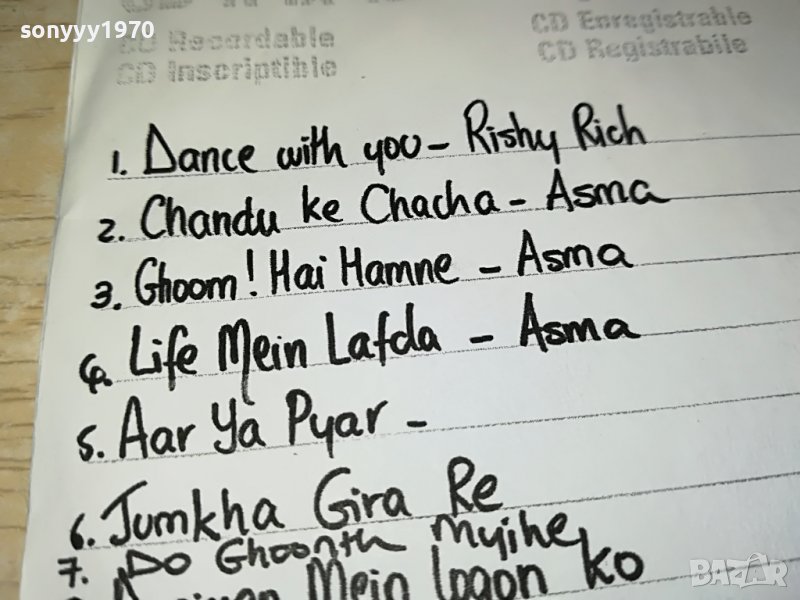 sonyyy1970
CD Recordable
CD Inscriptible
CD Enregistrable
CD Registrabile
1. Dance with you - Rishy Rich
2. Chandu ke Chacha - Asma
3. Ghoom! Hai Hamne - Asma
4. Life Mein Lafda - Asma
5. Aar Ya Pyar -
6. Jumkha Gira Re
7. Do Ghoonth Mujhe
Mein logon ko
BAZAR